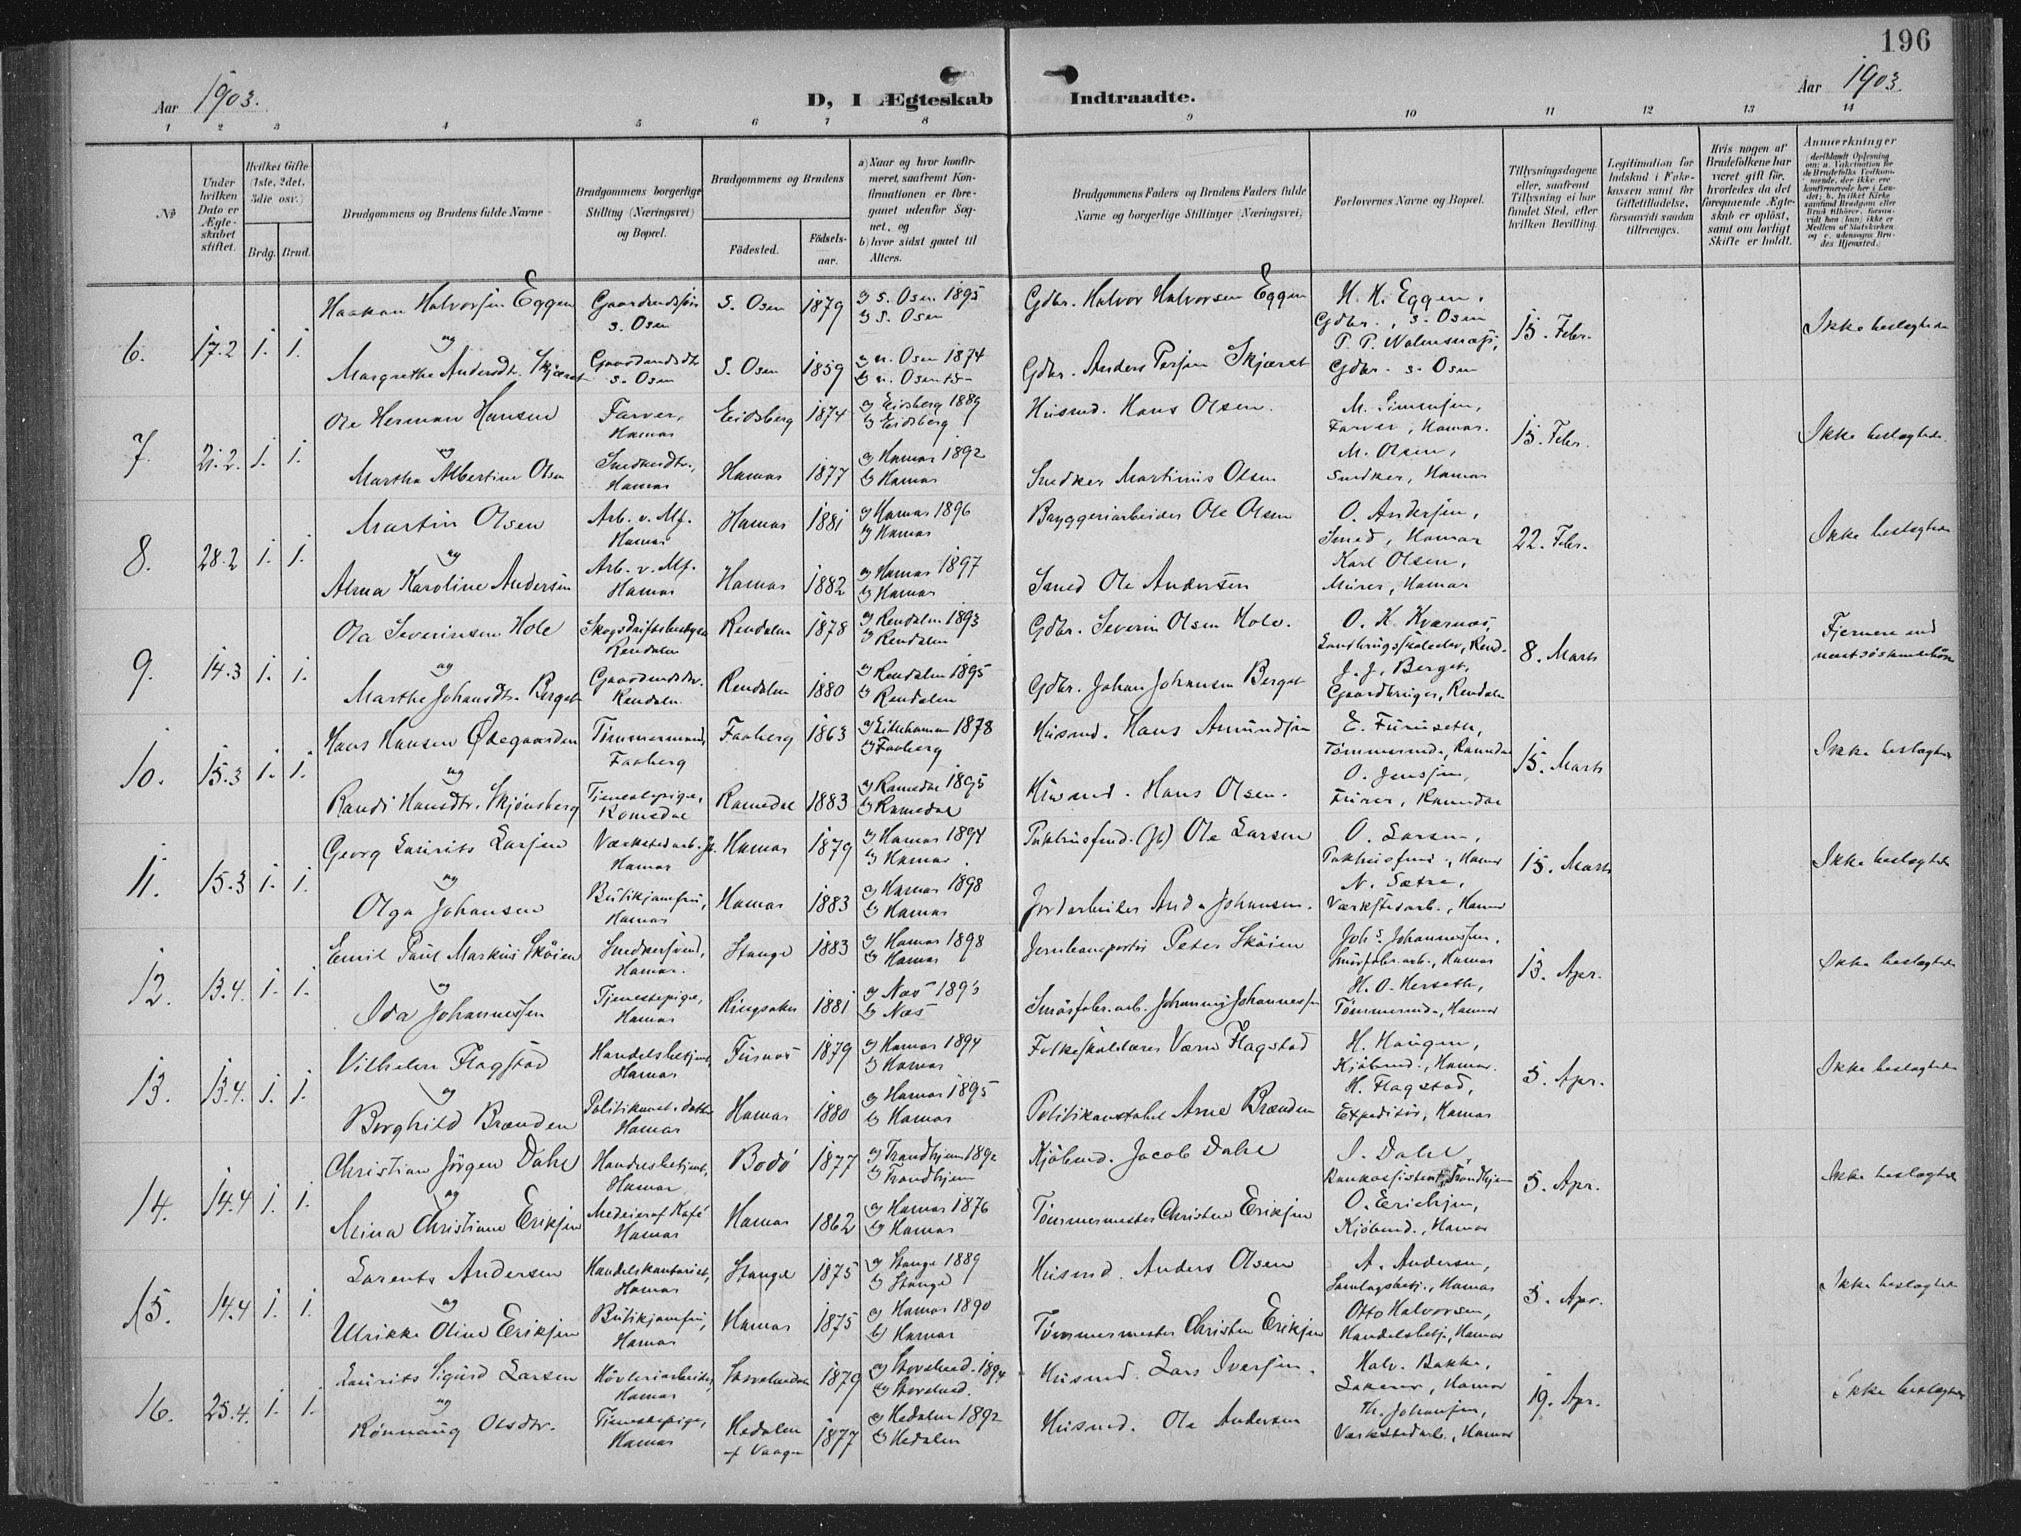 196
Aar 1903.
D, I Ægteskab Indtraadte.
Aar 1903.
1 2 3 4 5 6 7 8 9 10 11 12 13 14
№
Under hvilken Dato er Ægteskabet stiftet.
Hvilket Gifte (1ste, 2det, 3die osv.)
Brdg. Brud.
Brudgommens og Brudens fulde Navne
Brudgommens borgerlige Stilling (Næringsvei) og Bopæl.
Brudgommens og Brudens
Födested. Födselsaar.
a) Naar og hvor konfirmeret, saafremt Konfirmationen er foregaaet udenfor Sognet, og
b) hvor sidst gaaet til Alters.
Brudgommens Faders og Brudens Faders fulde Navne og borgerlige Stillinger (Næringsvei)
Forlovernes Navne og Bopæl.
Tillysningsdagene eller, saafremt Tillysning ei har fundet Sted, efter hvilken Bevilling.
Legitimation for Indskud i Enkekassen samt for Giftetilladelse, forsaavidt saadan tiltrænges.
Hvis nogen af Brudefolkene har været gift för, hvorledes da det foregaaende Ægteskab er oplöst, samt om lovligt Skifte er holdt.
Anmærkninger
6. 17.2 1. 1. Haakon Halvorsen Eggen Gaardmandssön S. Osen S. Osen 1879 a) S. Osen 1895 b) S. Osen Gdbr. Halvor Halvorsen Eggen H. H. Eggen, Gdbr., S. Osen 15. Febr. Ikke beslægtede
og
Margrethe Andersdtr. Skjæret Gaardmandsdtr S. Osen S. Osen 1859 a) n. Osen 1874 Gdbr. Anders Persen Skjæret Gdbr. S. Osen
7. 21.2. 1. 1. Ole Herman Hansen Farver, Hamar Eidsberg 1874 a) Eidsberg 1889 b) Eidsberg Husmd. Hans Olsen. M. Simensen, Farver, Hamar. 15. Febr. Ikke beslægtede
og
Martha Albertine Olsen Snedkerdtr., Hamar Hamar 1877 a) Hamar 1892 b) Hamar Snedker Martinius Olsen M. Olsen, Snedker, Hamar
8. 28.2 1. 1. Martin Olsen Arb. v. Mf. Hamar Hamar 1881 a) Hamar 1896 b) Hamar Bryggeriarbeider Ole Olsen O. Andersen, Smed, Hamar 22. Febr. Ikke beslægtede
og
Alma Karoline Andersen Arb. v. Mf. Hamar Hamar 1882 a) Hamar 1897 b) Hamar Smed Ole Andersen Karl Olsen, Murer, Hamar
9. 14.3 1. 1. Ola Severinsen Hole Skogsdriftsbestyrer Rendalen Rendalen 1878 a) Rendalen 1893 b) Rendalen Gdbr. Severin Olsen Hole. O. H. Kværnæs, 8. Marts Fjernere end næstsöskendebörn
og
Marthe Johansdtr. Berget Gaardmdsdtr. Rendalen Rendalen 1880 a) Rendalen 1895 b) Rendalen Gdbr. Johan Johansen Berget J. J. Berget, Gaardbruger, Rendalen
10. 15.3 1. 1. Hans Hansen Ødegaarden Tömmermand, Faaberg Faaberg 1863 a) Lillehammer 1878 b) Faaberg Husmd. Hans Amundsen E. Furuseth, Tömmermd., Romedal 15. Marts Ikke beslægtede
og
Randi Hansdtr. Skjönsberg Tjenestepige, Romedal Romedal 1883 a) Romedal 1895 b) Romedal Husmd. Hans Olsen. O. Jenssen, Furer, Romedal
11. 15.3 1. 1. Georg Laurits Larsen Værkstedarb. Hamar Hamar 1879 a) Hamar 1894 b) Hamar Pakhusfmd. Ole Larsen O. Larsen, Pakhusfmd., Hamar 15. Marts Ikke beslægtede
og
Olga Johansen Butikjomfru, Hamar Hamar 1883 a) Hamar 1898 b) Hamar Jordarbeider And. Johansen. N. Sætre, Værkstedarb., Hamar
12. 13.4. 1. 1. Emil Paul Markus Sköien Snedkersvend, Hamar. Stange 1883 a) Hamar 1898 b) Hamar Peter Sköien Johs. Johannessen, Smörfabr.arb., Hamar 13. Apr. Ikke beslægtede
og
Oda Johannessen Tjenestepige, Hamar Ringsaker 1881 a) Næs 1895 b) Næs Smörfabr.arb. Johannes Johannessen H. O. Herseth, Tömmermd., Hamar
13. 13.4. 1. 1. Vilhelm Flagstad Handelsbetjent, Hamar Furnæs 1879 a) Hamar 1894 b) Hamar Folkeskolelærer Værn Flagstad H. Haugen, Kjöbmd., Hamar. 5. Apr. Ikke beslægtede
og
Borghild Brænden Politikonst. datter Hamar Hamar 1880 a) Hamar 1895 b) Hamar Politikonstabel Arne Brænden H. Flagstad, Expeditör, Hamar
14. 14.4 1. 1. Christian Jörgen Dahl Handelsbetjent, Hamar Bodö 1877 a) Trondhjem 1892 b) Trondhjem Kjöbmd. Jacob Dahl Dahl, Bankassistent, Trondhjem 5. Apr. Ikke beslægtede
og
Mina Christiane Eriksen Medeier af Kafé Hamar Hamar 1862 a) Hamar 1876 b) Hamar Tömmermester Christen Eriksen O. Erichsen, Kjöbmd., Hamar
15. 14.4 1. 1. Lorents Andersen Handelskontorist, Hamar Stange 1875 a) Stange 1889 b) Stange Husmd. Anders Olsen A. Andersen, Samlagsbetj., Hamar 5. Apr. Ikke beslægtede
og
Ulrikke Oline Eriksen Butikjomfru, Hamar Hamar 1875 a) Hamar 1890 b) Hamar Tömmermester Christen Eriksen Otto Halvorsen, Handelsbetj., Hamar
16. 25.4. 1. 1. Laurits Sigurd Larsen Hövleriarbeider, Hamar 1879 Husmd. Lars Iversen. Halv. Bakke, Hamar 19. Apr. Ikke beslægtede
og
Rönnaug Olsdtr. Tjenestepige, Hamar Hedalen af Vaage 1877 a) Hedalen 1892 b) Hedalen Husmd. Ole Andersen Th. Johansen, Værkstedarb., Hamar